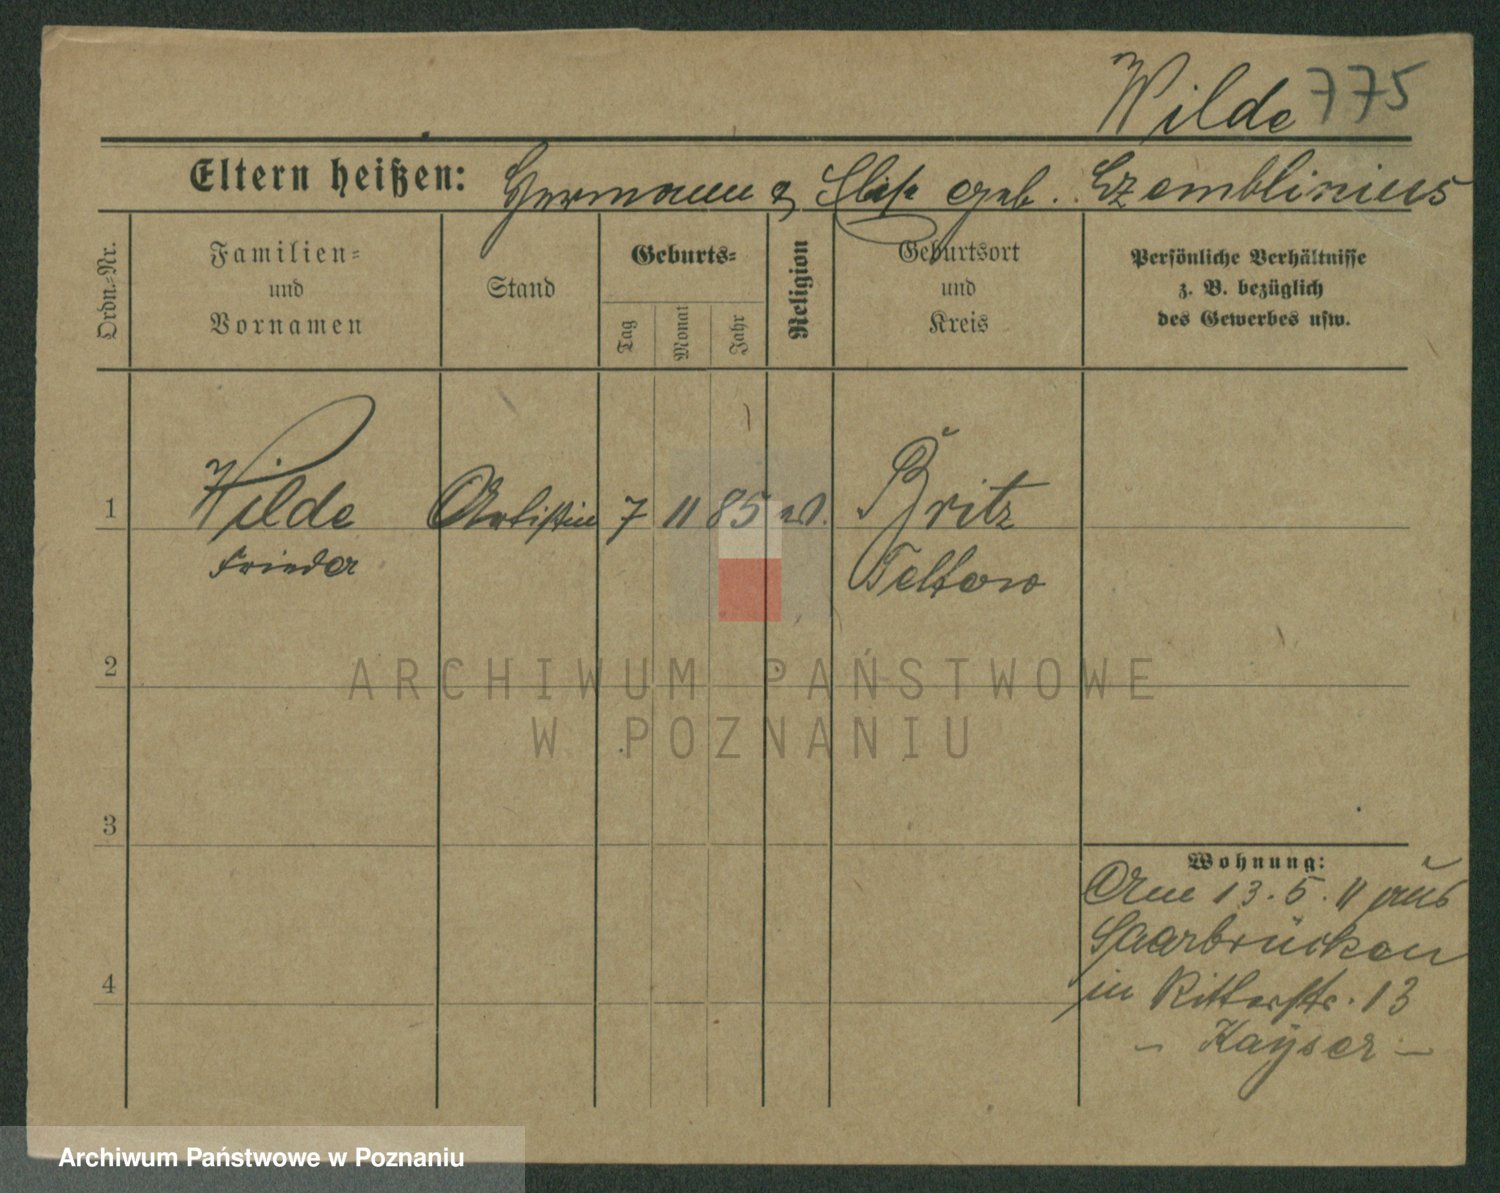 Wilde 775
Eltern heißen: Hermann & Elise geb. Szemblinius
Ordn.-Nr.
Familien-
und
Vornamen
Stand
Geburts-
Tag
Monat
Jahr
Religion
Geburtsort
und
Kreis
Persönliche Verhältnisse
z. B. bezüglich
des Gewerbes usw.
1 Wilde Artistin 7 11 85 ev. Britz
Frieda Teltow
2
3
4
Wohnung:
Am 13.5.11 aus
Saarbrücken
in Ritterstr. 13
- Kayser -
ARCHIWUM PAŃSTWOWE
W POZNANIU
Archiwum Państwowe w Poznaniu